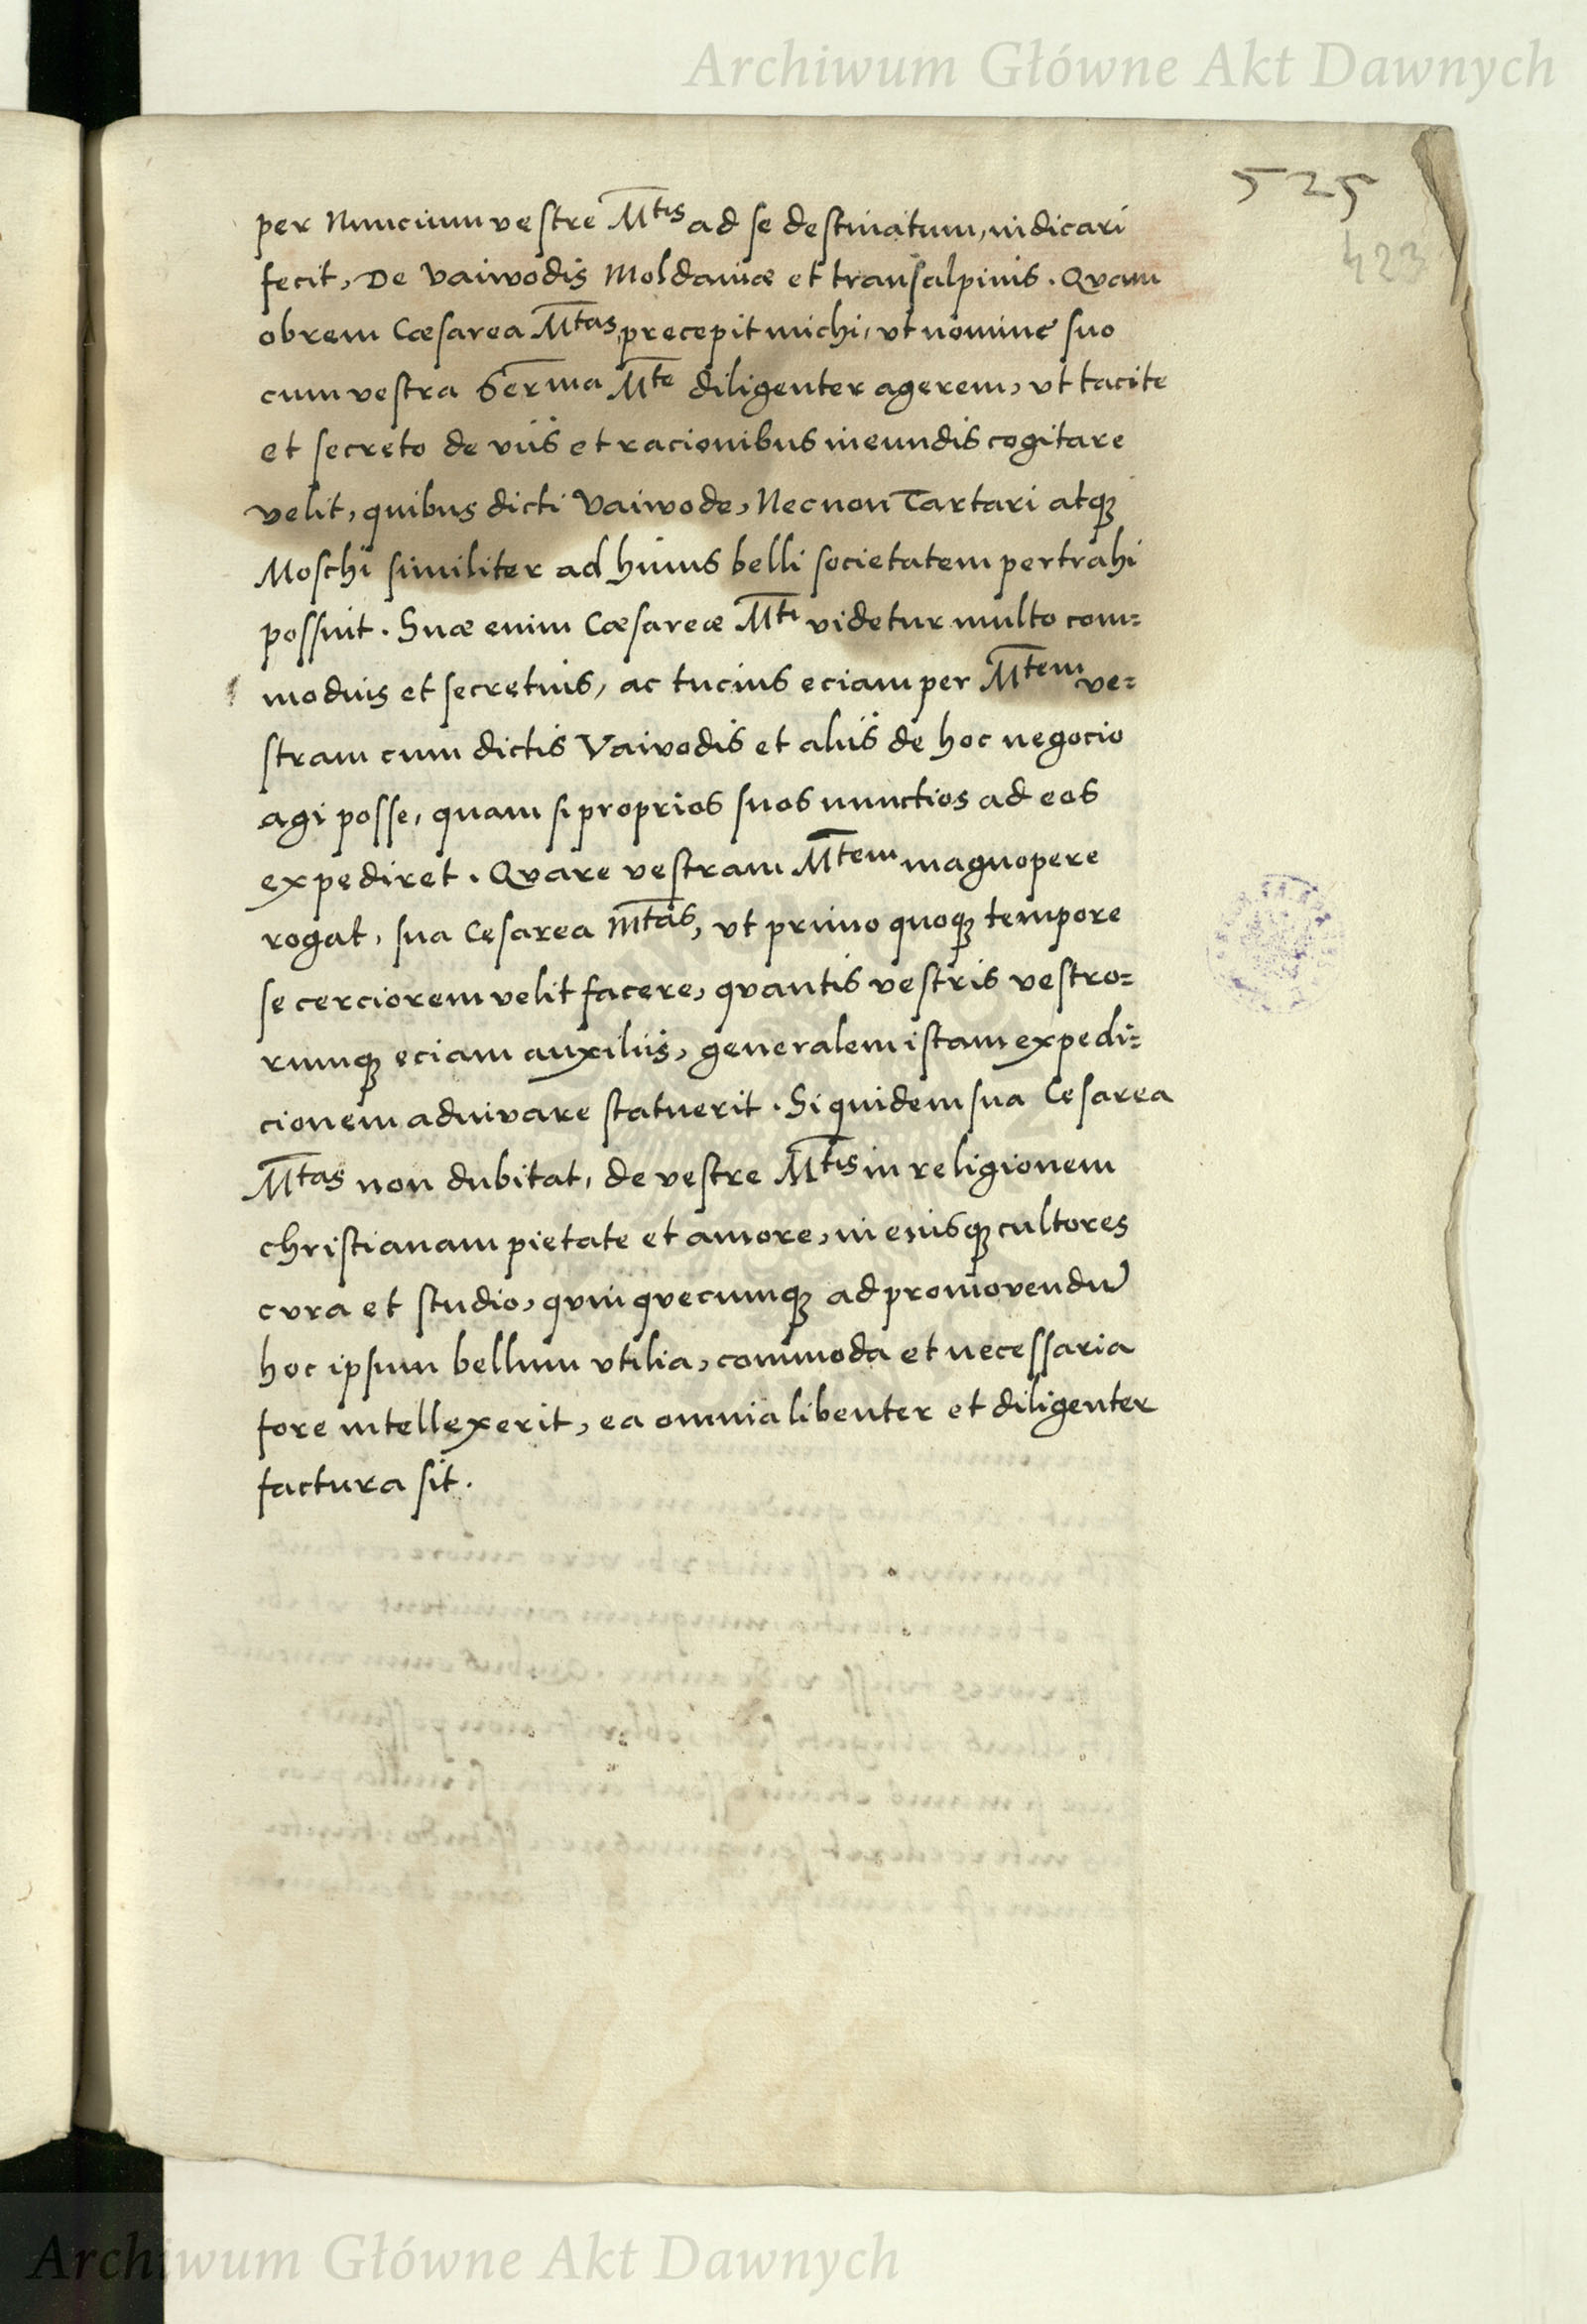 Archiwum Główne Akt Dawnych
525
423
per Nuncium vestre Mtis ad se destinatum, indicari
fecit, De Vaiwodis Moldaviæ et transalpinis. Quam
obrem Cæsarea Mtas, precepit michi, vt nomine suo
cum vestra Serma Mte diligenter agerem, vt tacite
et secreto de viis et racionibus ineundis cogitare
velit, quibus dicti Vaiwode, Necnon Tartari atq
Moschi similiter ad huius belli societatem pertrahi
possint. Suæ enim Cæsareæ Mti videtur multo com=
modius et secretius, ac tucius eciam per Mtem ve=
stram cum dictis Vaivodis et aliis de hoc negocio
agi posse, quam si proprios suos nunctios ad eos
expediret. Quare vestram Mtem magnopere
rogat, sua Cesarea Mtas, vt primo quoq tempore
se cerciorem velit facere, quantis vestris vestro=
rumq eciam auxiliis, generalem istam expedi=
cionem adiuvare statuerit. Siquidem sua Cesarea
Mtas non dubitat, de vestre Mtis in religionem
christianam pietate et amore, in eiusq cultores
cura et studio, quin quecumq ad promovendū
hoc ipsum bellum vtilia, commoda et necessaria
fore intellexerit, ea omnia libenter et diligenter
factura sit.
Archiwum Główne Akt Dawnych